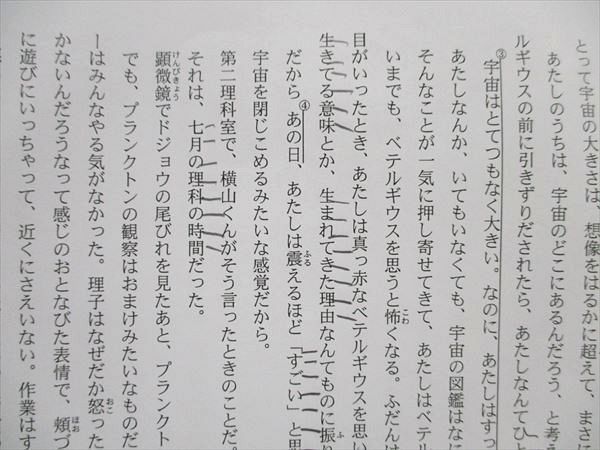 とって宇宙の大きさは、想像をはるかに超えて、まさに
あたしのうちは、宇宙のどこにあるんだろう、と考え
ルギウスの前に引きずりだされたら、あたしなんてひと
③宇宙はとてつもなく大きい。なのに、あたしはすっ
あたしなんか、いてもいなくても、宇宙の図鑑はなに
そんなことが一気に押し寄せてきて、あたしはベテル
いまでも、ベテルギウスを思うと怖くなる。ふだんは
こわ
目がいったとき、あたしは真っ赤なベテルギウスを思い
生きてる意味とか、生まれてきた理由なんてものに振り
ふ
だから④あの日、あたしは震えるほど「すごい」と思
ふる
宇宙を閉じこめるみたいな感覚だから。
第二理科室で、横山くんがそう言ったときのことだ。
それは、七月の理科の時間だった。
顕微鏡でドジョウの尾びれを見たあと、プランクト
けんびきょう
でも、プランクトンの観察はおまけみたいなものだ
ーはみんなやる気がなかった。理子はなぜだか怒った
おこ
かないんだろうなって感じのおとなびた表情で、頬づ
ほお
に遊びにいっちゃって、近くにさえいない。作業はす